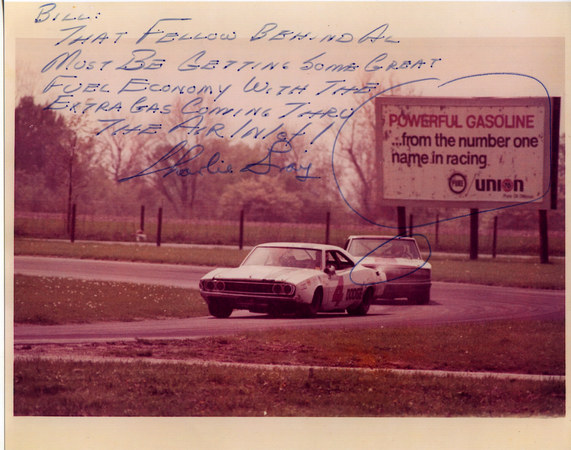 BILL:
THAT FELLOW BEHIND AL
MUST BE GETTING SOME GREAT
FUEL ECONOMY WITH THE
EXTRA GAS COMING THRU
THE AIR INLET!
Charlie Gray
POWERFUL GASOLINE
...from the number one
name in racing
PURE union
4